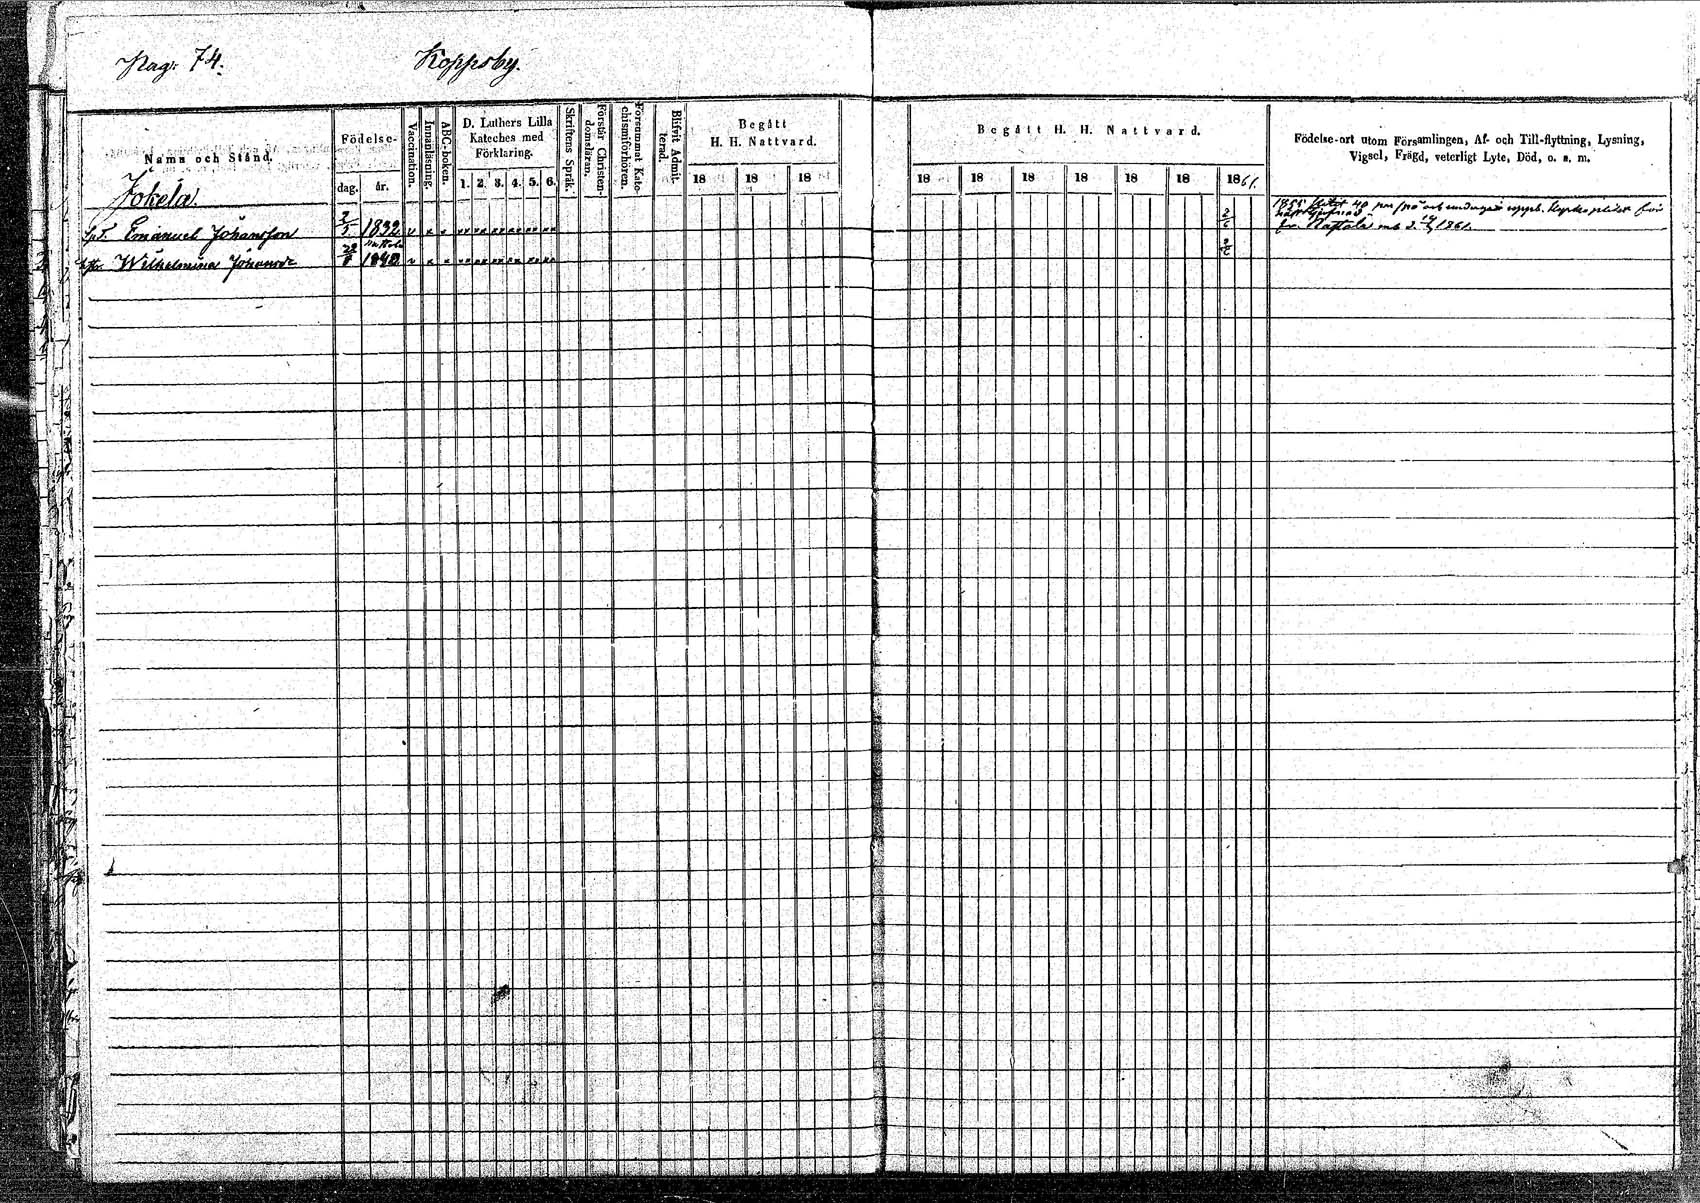 Pag: 74.
Koppsby.
Namn och Stånd.
Födelse-
dag.
år.
Vaccination.
Innanläsning.
ABC-boken.
D. Luthers Lilla
Kateches med
Förklaring.
1. 2. 3. 4. 5. 6.
Skriftens Språk.
Förstår Christen-
domsläran.
Försummat Kate-
chismiförhören.
Blifvit Admit-
terad.
Begått
H. H. Nattvard.
18 18 18
Begått H. H. Nattvard.
18 18 18 18 18 18 1861.
Födelse-ort utom Församlingen, Af- och Till-flyttning, Lysning,
Vigsel, Frägd, veterligt Lyte, Död, o. s. m.
Jokela.
Emanuel Johansson 2/5 1832 v
Wilhelmina Johansdr 1840 v
1855
1861.